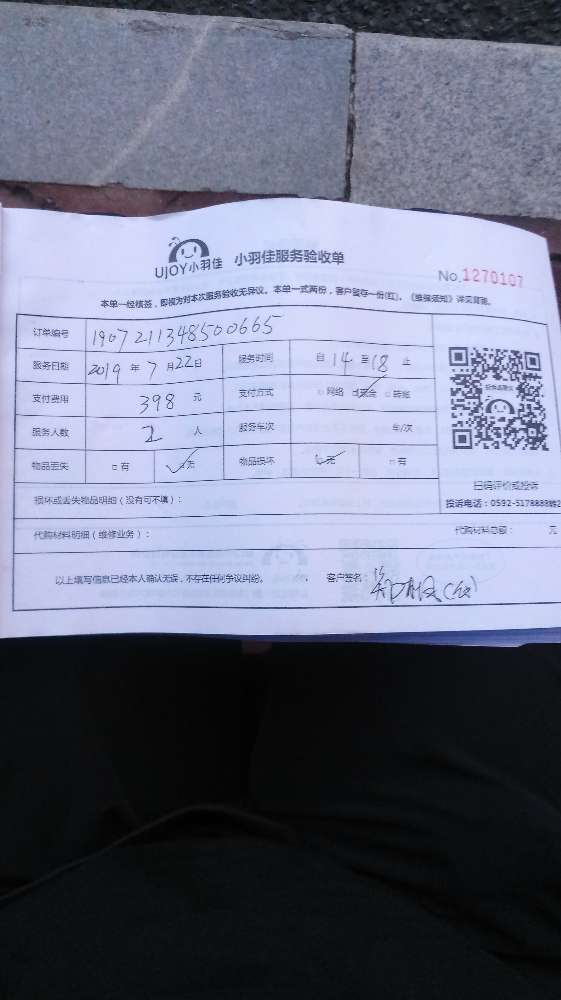 UJOY小羽佳 小羽佳服务验收单
No.1270107
本单一经核签，即视为对本次服务验收无异议。本单一式两份，客户留存一份(红)。《维保须知》详见背面。
订单编号 190721134850​0665
服务日期 2019 年 7 月 22 日 服务时间 自 14 至 18 止
支付费用 398 元 支付方式 □网络 ☑现金 □转账
服务人数 2 人 服务车次 车/次
物品丢失 □有 ☑无 物品损坏 ☑无 □有
扫码评价或投诉
损坏或丢失物品明细（没有可不填）：
投诉电话：0592-5178888转2
代购材料明细（维修业务）： 代购材料总额： 元
以上填写信息已经本人确认无误，不存在任何争议纠纷。 客户签名：